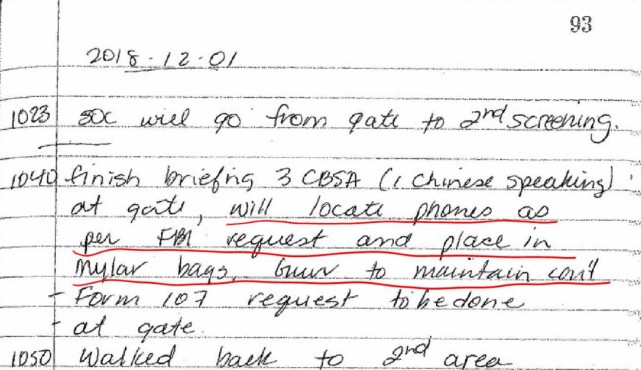 93
2018-12-01
1023 SOC will go from gate to 2nd screening.
1040 finish briefing 3 CBSA (1 Chinese speaking)
at gate, will locate phones as
per FBI request and place in
Mylar bags. to maintain
- Form 107 request to be done
- at gate.
1050 Walked back to 2nd area